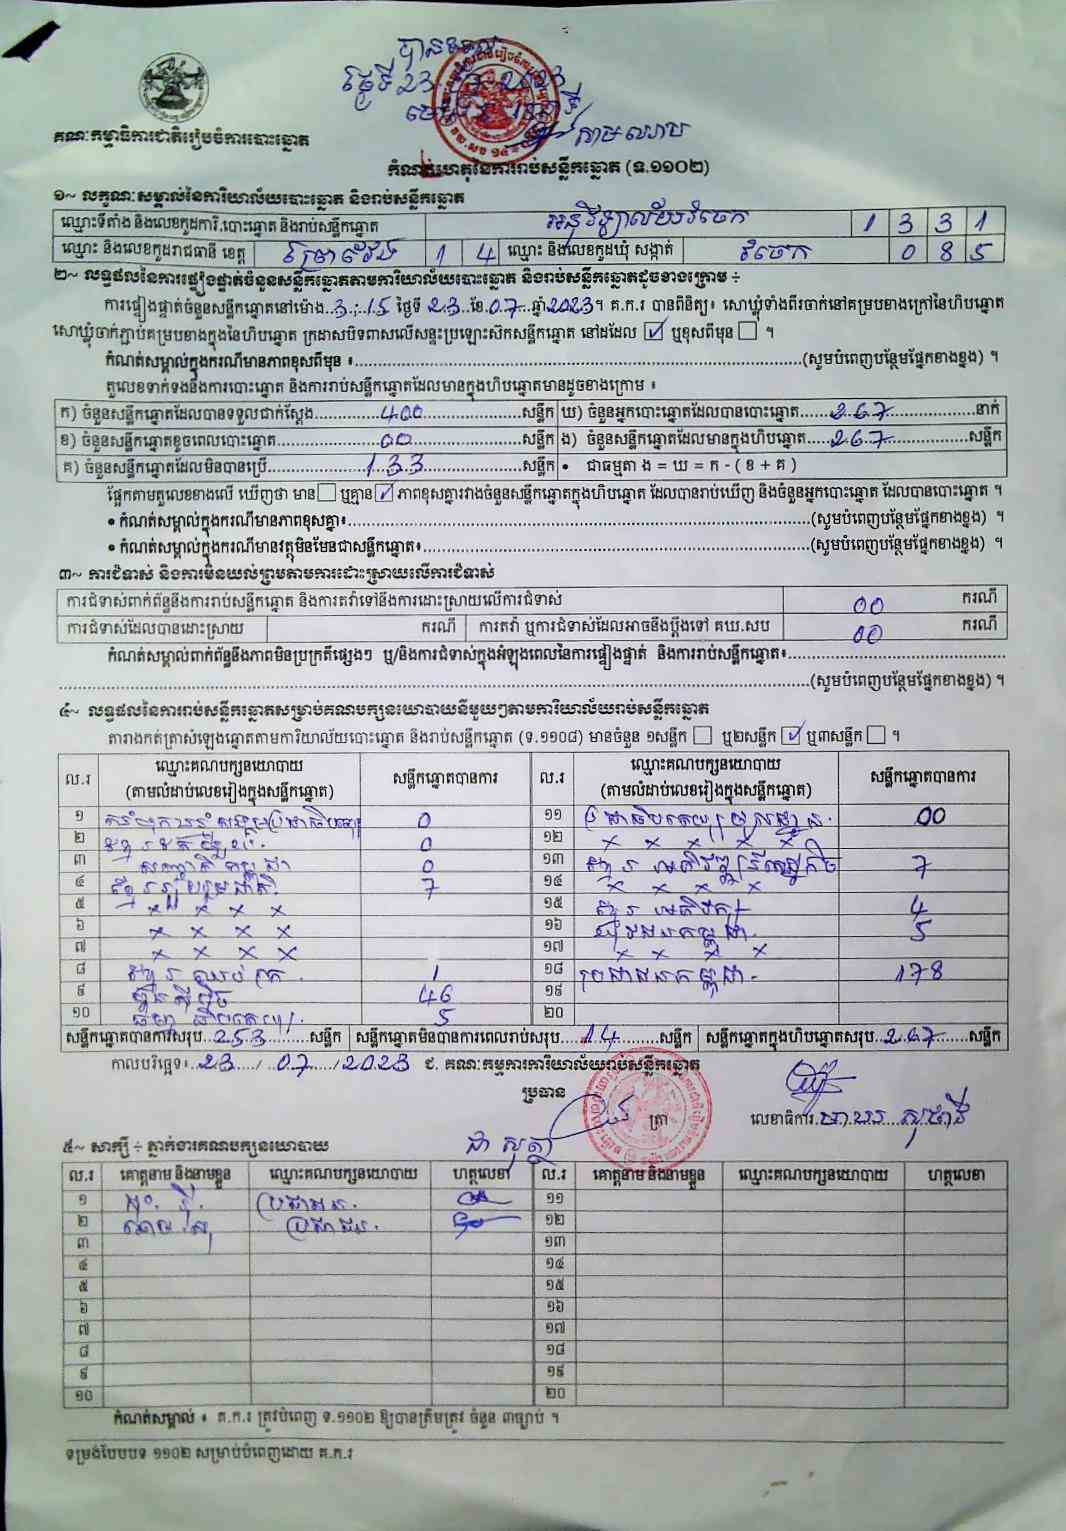 បានឃើញ
ថ្ងៃទី 23
គណៈកម្មាធិការជាតិរៀបចំការបោះឆ្នោត
កំណត់ហេតុនៃការរាប់សន្លឹកឆ្នោត (ទ.១១០២)
១~ លក្ខណៈសម្គាល់នៃការិយាល័យបោះឆ្នោត និងរាប់សន្លឹកឆ្នោត
ឈ្មោះទីតាំង និងលេខកូដការិ.បោះឆ្នោត និងរាប់សន្លឹកឆ្នោត អនុវិទ្យាល័យរំចេក 1 3 3 1
ឈ្មោះ និងលេខកូដរាជធានី ខេត្ត ព្រៃវែង 1 4 ឈ្មោះ និងលេខកូដឃុំ សង្កាត់ រំចេក 0 8 5
២~ លទ្ធផលនៃការផ្ទៀងផ្ទាត់ចំនួនសន្លឹកឆ្នោតតាមការិយាល័យបោះឆ្នោត និងរាប់សន្លឹកឆ្នោតដូចខាងក្រោម ÷
ការផ្ទៀងផ្ទាត់ចំនួនសន្លឹកឆ្នោតនៅម៉ោង..3.:.15 ថ្ងៃទី 23..ខែ.07...ឆ្នាំ2023។ គ.ក.រ បានពិនិត្យ៖ សោឃ្លុំទាំងពីរចាក់នៅគម្របខាងក្រៅនៃហិបឆ្នោត
សោឃ្លុំចាក់ភ្ជាប់គម្របខាងក្នុងនៃហិបឆ្នោត ក្រដាសបិទពាសលើសន្ទះប្រឡោះស៊កសន្លឹកឆ្នោត នៅដដែល ☑ ឬខុសពីមុន ☐ ។
កំណត់សម្គាល់ក្នុងករណីមានភាពខុសពីមុន ៖..........(សូមបំពេញបន្ថែមផ្នែកខាងខ្នង) ។
តួលេខទាក់ទងនឹងការបោះឆ្នោត និងការរាប់សន្លឹកឆ្នោតដែលមានក្នុងហិបឆ្នោតមានដូចខាងក្រោម ៖
ក) ចំនួនសន្លឹកឆ្នោតដែលបានទទួលជាក់ស្តែង......400......សន្លឹក ឃ) ចំនួនអ្នកបោះឆ្នោតដែលបានបោះឆ្នោត......267......នាក់
ខ) ចំនួនសន្លឹកឆ្នោតខូចពេលបោះឆ្នោត......00......សន្លឹក ង) ចំនួនសន្លឹកឆ្នោតដែលមានក្នុងហិបឆ្នោត......267......សន្លឹក
គ) ចំនួនសន្លឹកឆ្នោតដែលមិនបានប្រើ......133......សន្លឹក • ជាធម្មតា ង = ឃ = ក - ( ខ + គ )
ផ្អែកតាមតួលេខខាងលើ ឃើញថា មាន ☐ ឬគ្មាន ☑ ភាពខុសគ្នារវាងចំនួនសន្លឹកឆ្នោតក្នុងហិបឆ្នោត ដែលបានរាប់ឃើញ និងចំនួនអ្នកបោះឆ្នោត ដែលបានបោះឆ្នោត ។
• កំណត់សម្គាល់ក្នុងករណីមានភាពខុសគ្នា៖..........(សូមបំពេញបន្ថែមផ្នែកខាងខ្នង) ។
• កំណត់សម្គាល់ក្នុងករណីមានវត្ថុមិនមែនជាសន្លឹកឆ្នោត៖..........(សូមបំពេញបន្ថែមផ្នែកខាងខ្នង) ។
៣~ ការជំទាស់ និងការមិនយល់ព្រមតាមការដោះស្រាយលើការជំទាស់
ការជំទាស់ពាក់ព័ន្ធនឹងការរាប់សន្លឹកឆ្នោត និងការតវ៉ាទៅនឹងការដោះស្រាយលើការជំទាស់ 00 ករណី
ការជំទាស់ដែលបានដោះស្រាយ ករណី ការតវ៉ា ឬការជំទាស់ដែលអាចនឹងប្តឹងទៅ គឃ.សប 00 ករណី
កំណត់សម្គាល់ពាក់ព័ន្ធនឹងភាពមិនប្រក្រតីផ្សេងៗ ឬ/និងការជំទាស់ក្នុងអំឡុងពេលនៃការផ្ទៀងផ្ទាត់ និងការរាប់សន្លឹកឆ្នោត៖..........
..........(សូមបំពេញបន្ថែមផ្នែកខាងខ្នង) ។
៤~ លទ្ធផលនៃការរាប់សន្លឹកឆ្នោតសម្រាប់គណបក្សនយោបាយនីមួយៗតាមការិយាល័យរាប់សន្លឹកឆ្នោត
តារាងកត់ត្រាសំឡេងឆ្នោតតាមការិយាល័យបោះឆ្នោត និងរាប់សន្លឹកឆ្នោត (ទ.១១០៨) មានចំនួន ១សន្លឹក ☐ ឬ២សន្លឹក ☑ ឬ៣សន្លឹក ☐ ។
ល.រ ឈ្មោះគណបក្សនយោបាយ សន្លឹកឆ្នោតបានការ ល.រ ឈ្មោះគណបក្សនយោបាយ សន្លឹកឆ្នោតបានការ
(តាមលំដាប់លេខរៀងក្នុងសន្លឹកឆ្នោត) (តាមលំដាប់លេខរៀងក្នុងសន្លឹកឆ្នោត)
១ 0 ១១ 00
២ 0 ១២ x x x x
៣ សញ្ជាតិកម្ពុជា 0 ១៣ 7
៤ ខ្មែររួបរួមជាតិ 7 ១៤ x x x x
៥ x x x x ១៥ 4
៦ x x x x ១៦ 5
៧ x x x x ១៧ x x x x
៨ 1 ១៨ ប្រជាជនកម្ពុជា 178
៩ ហ្វ៊ុនស៊ិនប៉ិច 46 ១៩
១០ 5 ២០
សន្លឹកឆ្នោតបានការសរុប..253......សន្លឹក សន្លឹកឆ្នោតមិនបានការពេលរាប់សរុប....14......សន្លឹក សន្លឹកឆ្នោតក្នុងហិបឆ្នោតសរុប..267......សន្លឹក
កាលបរិច្ឆេទ៖..23..../..07..../2023 ជ. គណៈកម្មការការិយាល័យរាប់សន្លឹកឆ្នោត
ប្រធាន
ត្រា លេខាធិការ
ជា សុត្ថា
៥~ សាក្សី ÷ ភ្នាក់ងារគណបក្សនយោបាយ
ល.រ គោត្តនាម និងនាមខ្លួន ឈ្មោះគណបក្សនយោបាយ ហត្ថលេខា ល.រ គោត្តនាម និងនាមខ្លួន ឈ្មោះគណបក្សនយោបាយ ហត្ថលេខា
១ ប្រជាជន ១១
២ ប្រជាជន ១២
៣ ១៣
៤ ១៤
៥ ១៥
៦ ១៦
៧ ១៧
៨ ១៨
៩ ១៩
១០ ២០
កំណត់សម្គាល់ ៖ គ.ក.រ ត្រូវបំពេញ ទ.១១០២ ឱ្យបានត្រឹមត្រូវ ចំនួន ៣ច្បាប់ ។
ទម្រង់បែបបទ ១១០២ សម្រាប់បំពេញដោយ គ.ក.រ